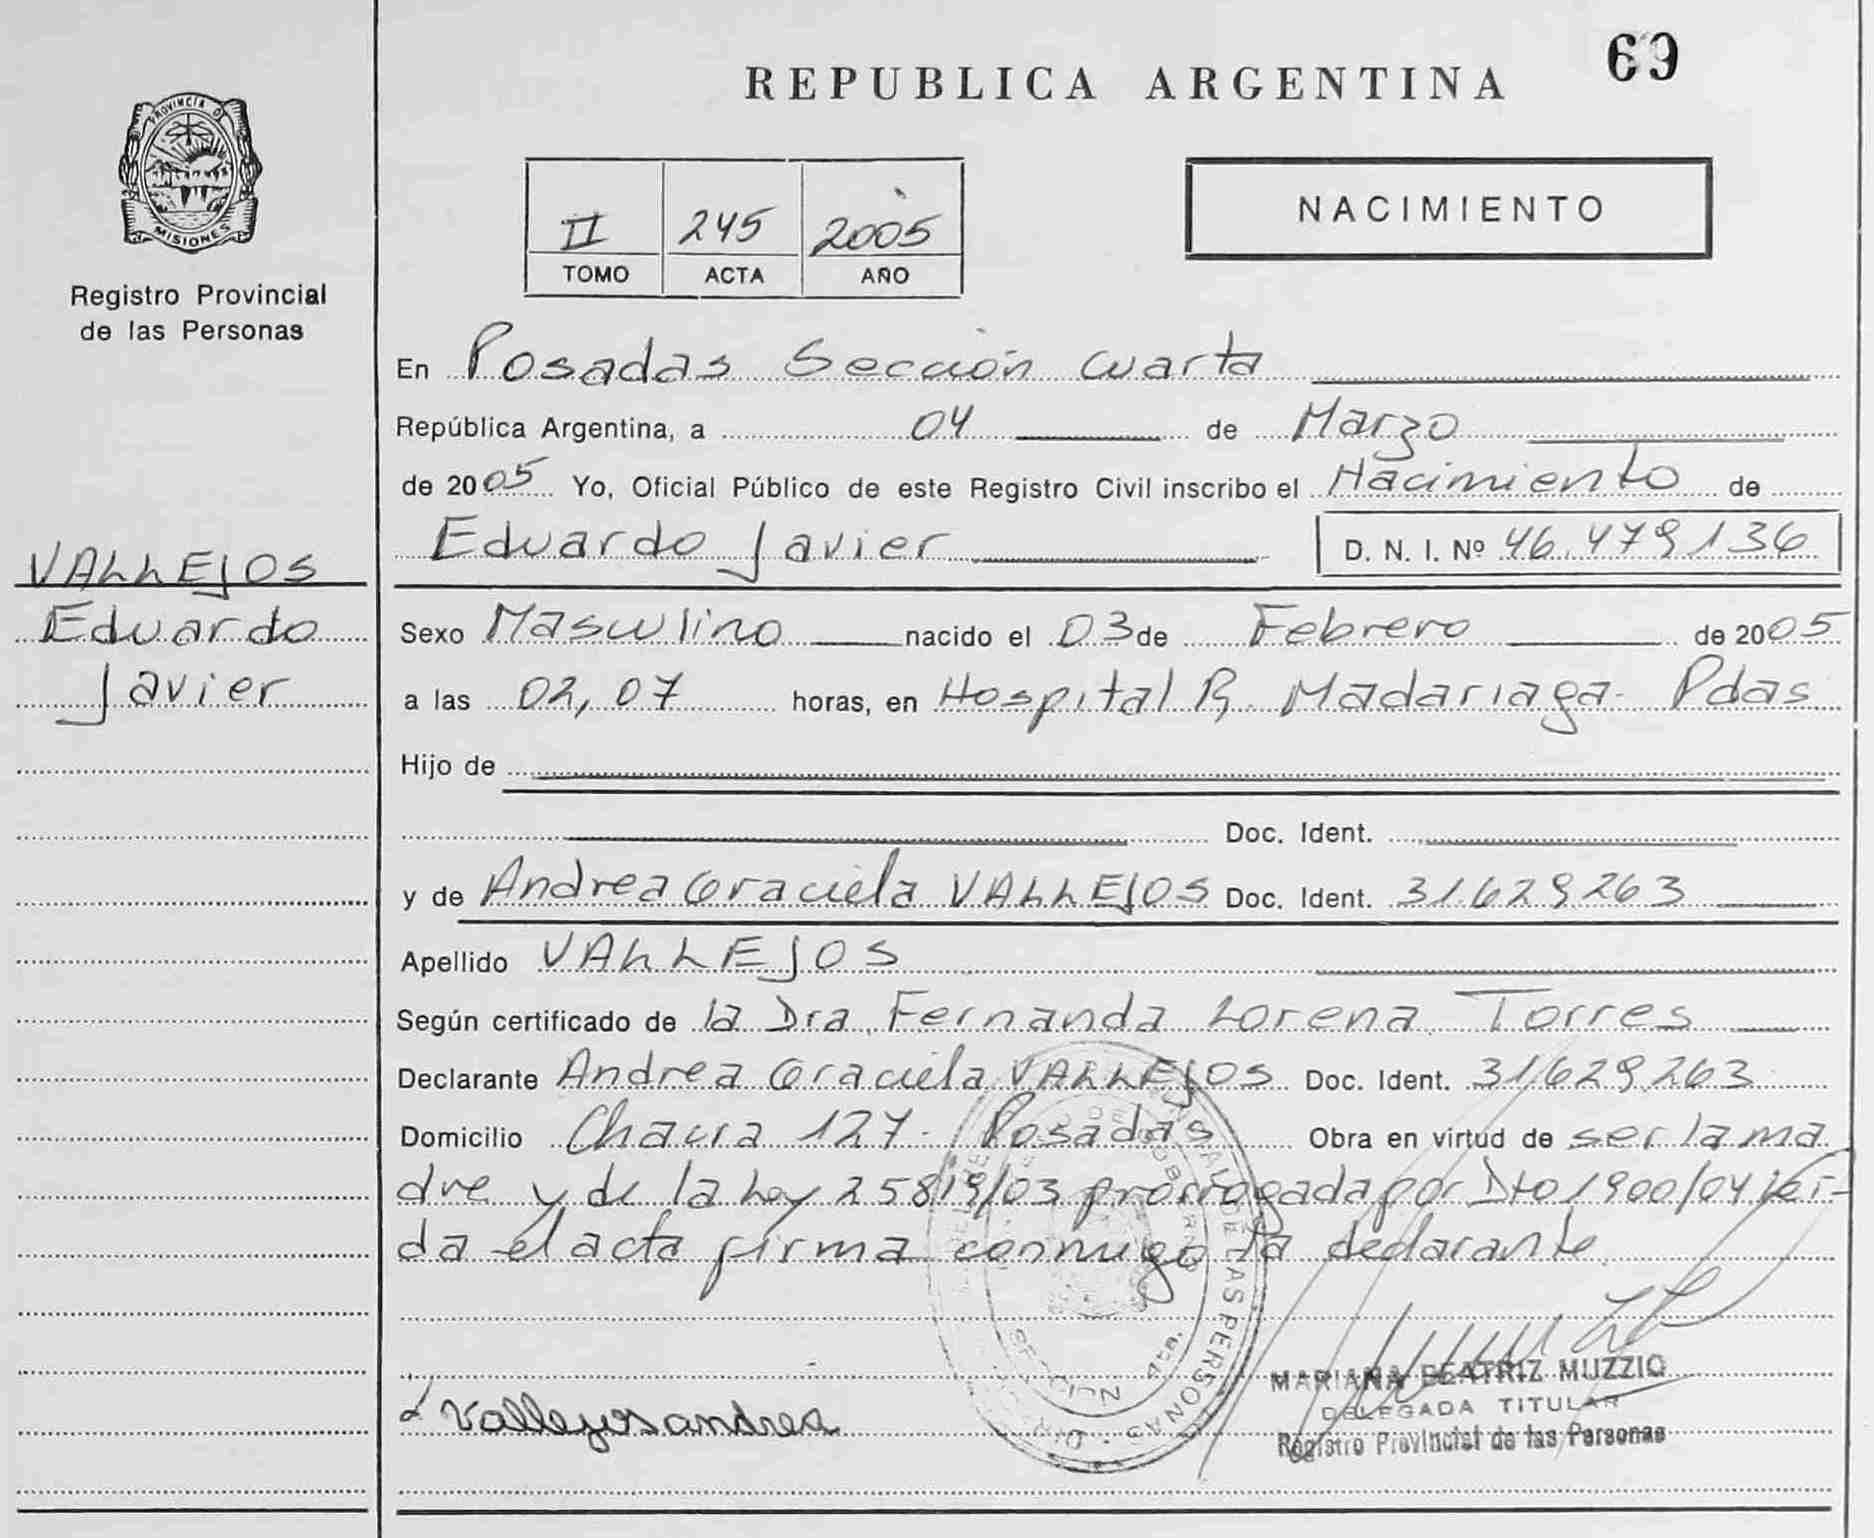 69
REPUBLICA ARGENTINA
PROVINCIA D
MISIONES
Registro Provincial
de las Personas
II 245 2005
TOMO ACTA AÑO
NACIMIENTO
En Posadas Sección Cuarta
República Argentina, a 04 de Marzo
de 2005 Yo, Oficial Público de este Registro Civil inscribo el Nacimiento de
Eduardo Javier D. N. I. Nº 46.479136
VALLEJOS
Eduardo
Javier
Sexo Masculino nacido el 03 de Febrero de 2005
a las 02,07 horas, en Hospital R. Madariaga- Pdas
Hijo de
Doc. Ident.
y de Andrea Graciela VALLEJOS Doc. Ident. 31.629263
Apellido VALLEJOS
Según certificado de la Dra. Fernanda Lorena Torres
Declarante Andrea Graciela VALLEJOS Doc. Ident. 31629.263
Domicilio Chacra 127- Posadas Obra en virtud de ser la ma
dre y de la Ley 25819/03 prorrogada por Dto 1900/04 lei-
da el acta firma conmigo la declarante
Vallejos andrea
MARIANA BEATRIZ MUZZIO
DELEGADA TITULAR
Registro Provincial de las Personas
DE LAS PERSONAS
SECCION 4ta.